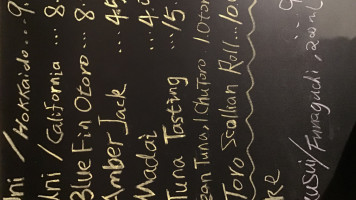 Uni / Hokkaido ... 9.
Uni / California ... 8.
Blue Fin Otoro ... 8.
Amber Jack ... 4.5
Madai ... 4.
Tuna Tasting ... 15.
Tuna, 1 Chutoro 1 Otoro
Toro Scallion Roll ... 10
Funaguchi, 200ml